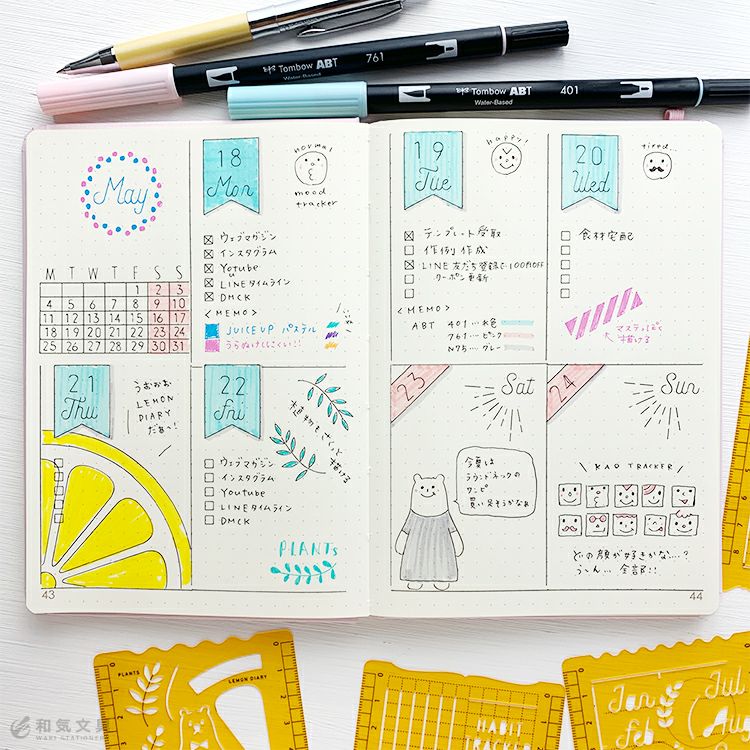 Tombow ABT 761
Water-Based
Tombow ABT 401
Water-Based
May
M T W T F S S
1 2 3
4 5 6 7 8 9 10
11 12 13 14 15 16 17
18 19 20 21 22 23 24
25 26 27 28 29 30 31
18
Mon
normal
mood
tracker
ウェブマガジン
インスタグラム
Yotube
u
LINEタイムライン
DMCK
<MEMO>
JUICE UP パステル
うらぬけしにくい!!
19
Tue
happy!
テンプレート受取
作例作成
LINE友だち登録で100円OFF
クーポン更新
<MEMO>
ABT 401...水色
761...ピンク
N75...グレー
20
Wed
tired...
食材宅配
マステっぽく
描ける
21
Thu
うおおお
LEMON
DIARY
だぁ~!
22
Fri
植物もさらっと
描ける
ウェブマガジン
インスタグラム
Youtube
LINEタイムライン
DMCK
PLANTs
23
Sat
今夏は
ラウンドネックの
ワンピ
買い足そうかなぁ
24
Sun
KAO TRACKER
どの顔が好きかな...?
う~ん... 全部!!
43
44
PLANTS
LEMON DIARY
HABIT
TRACKER
Jan
Feb
Jul
Au
和気文具
WAKI STATIONER